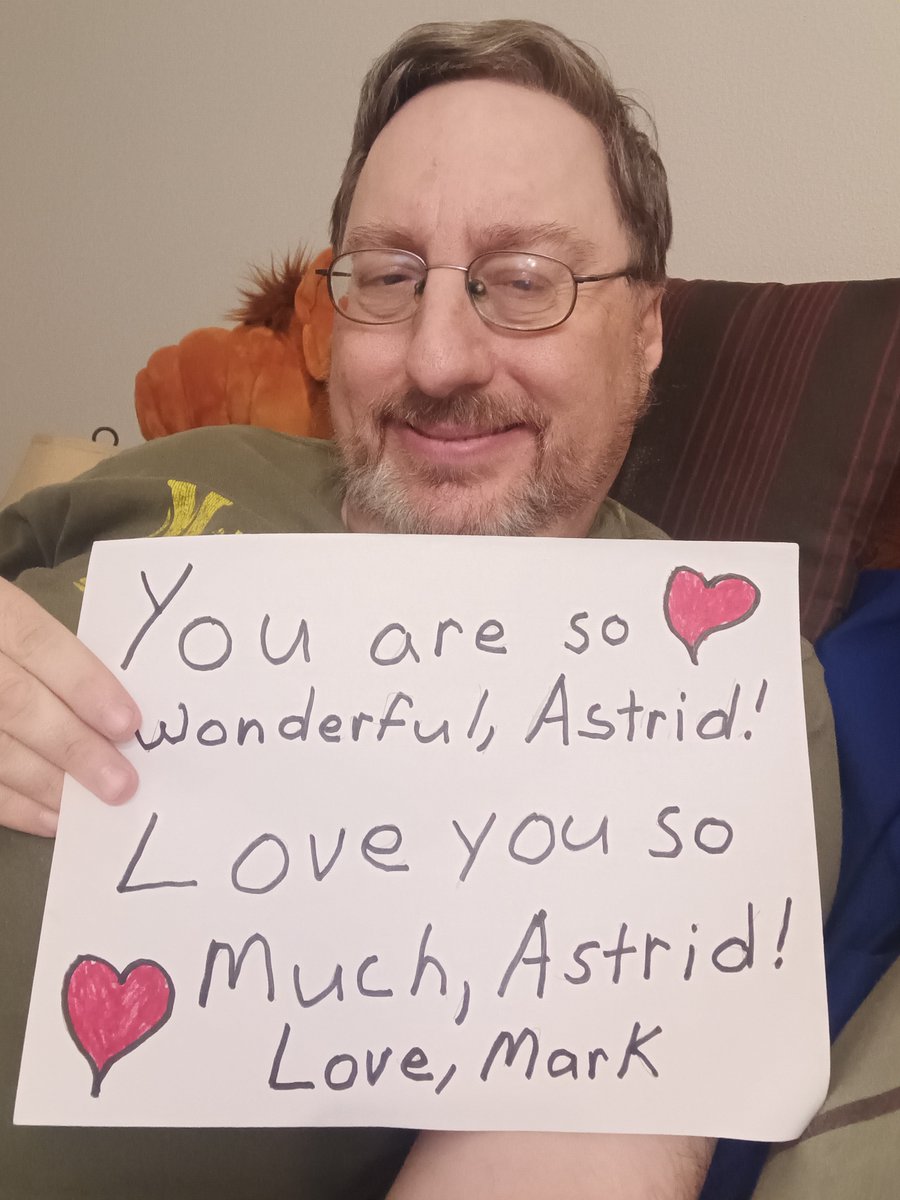 You are so
wonderful, Astrid!
Love you so
Much, Astrid!
Love, Mark